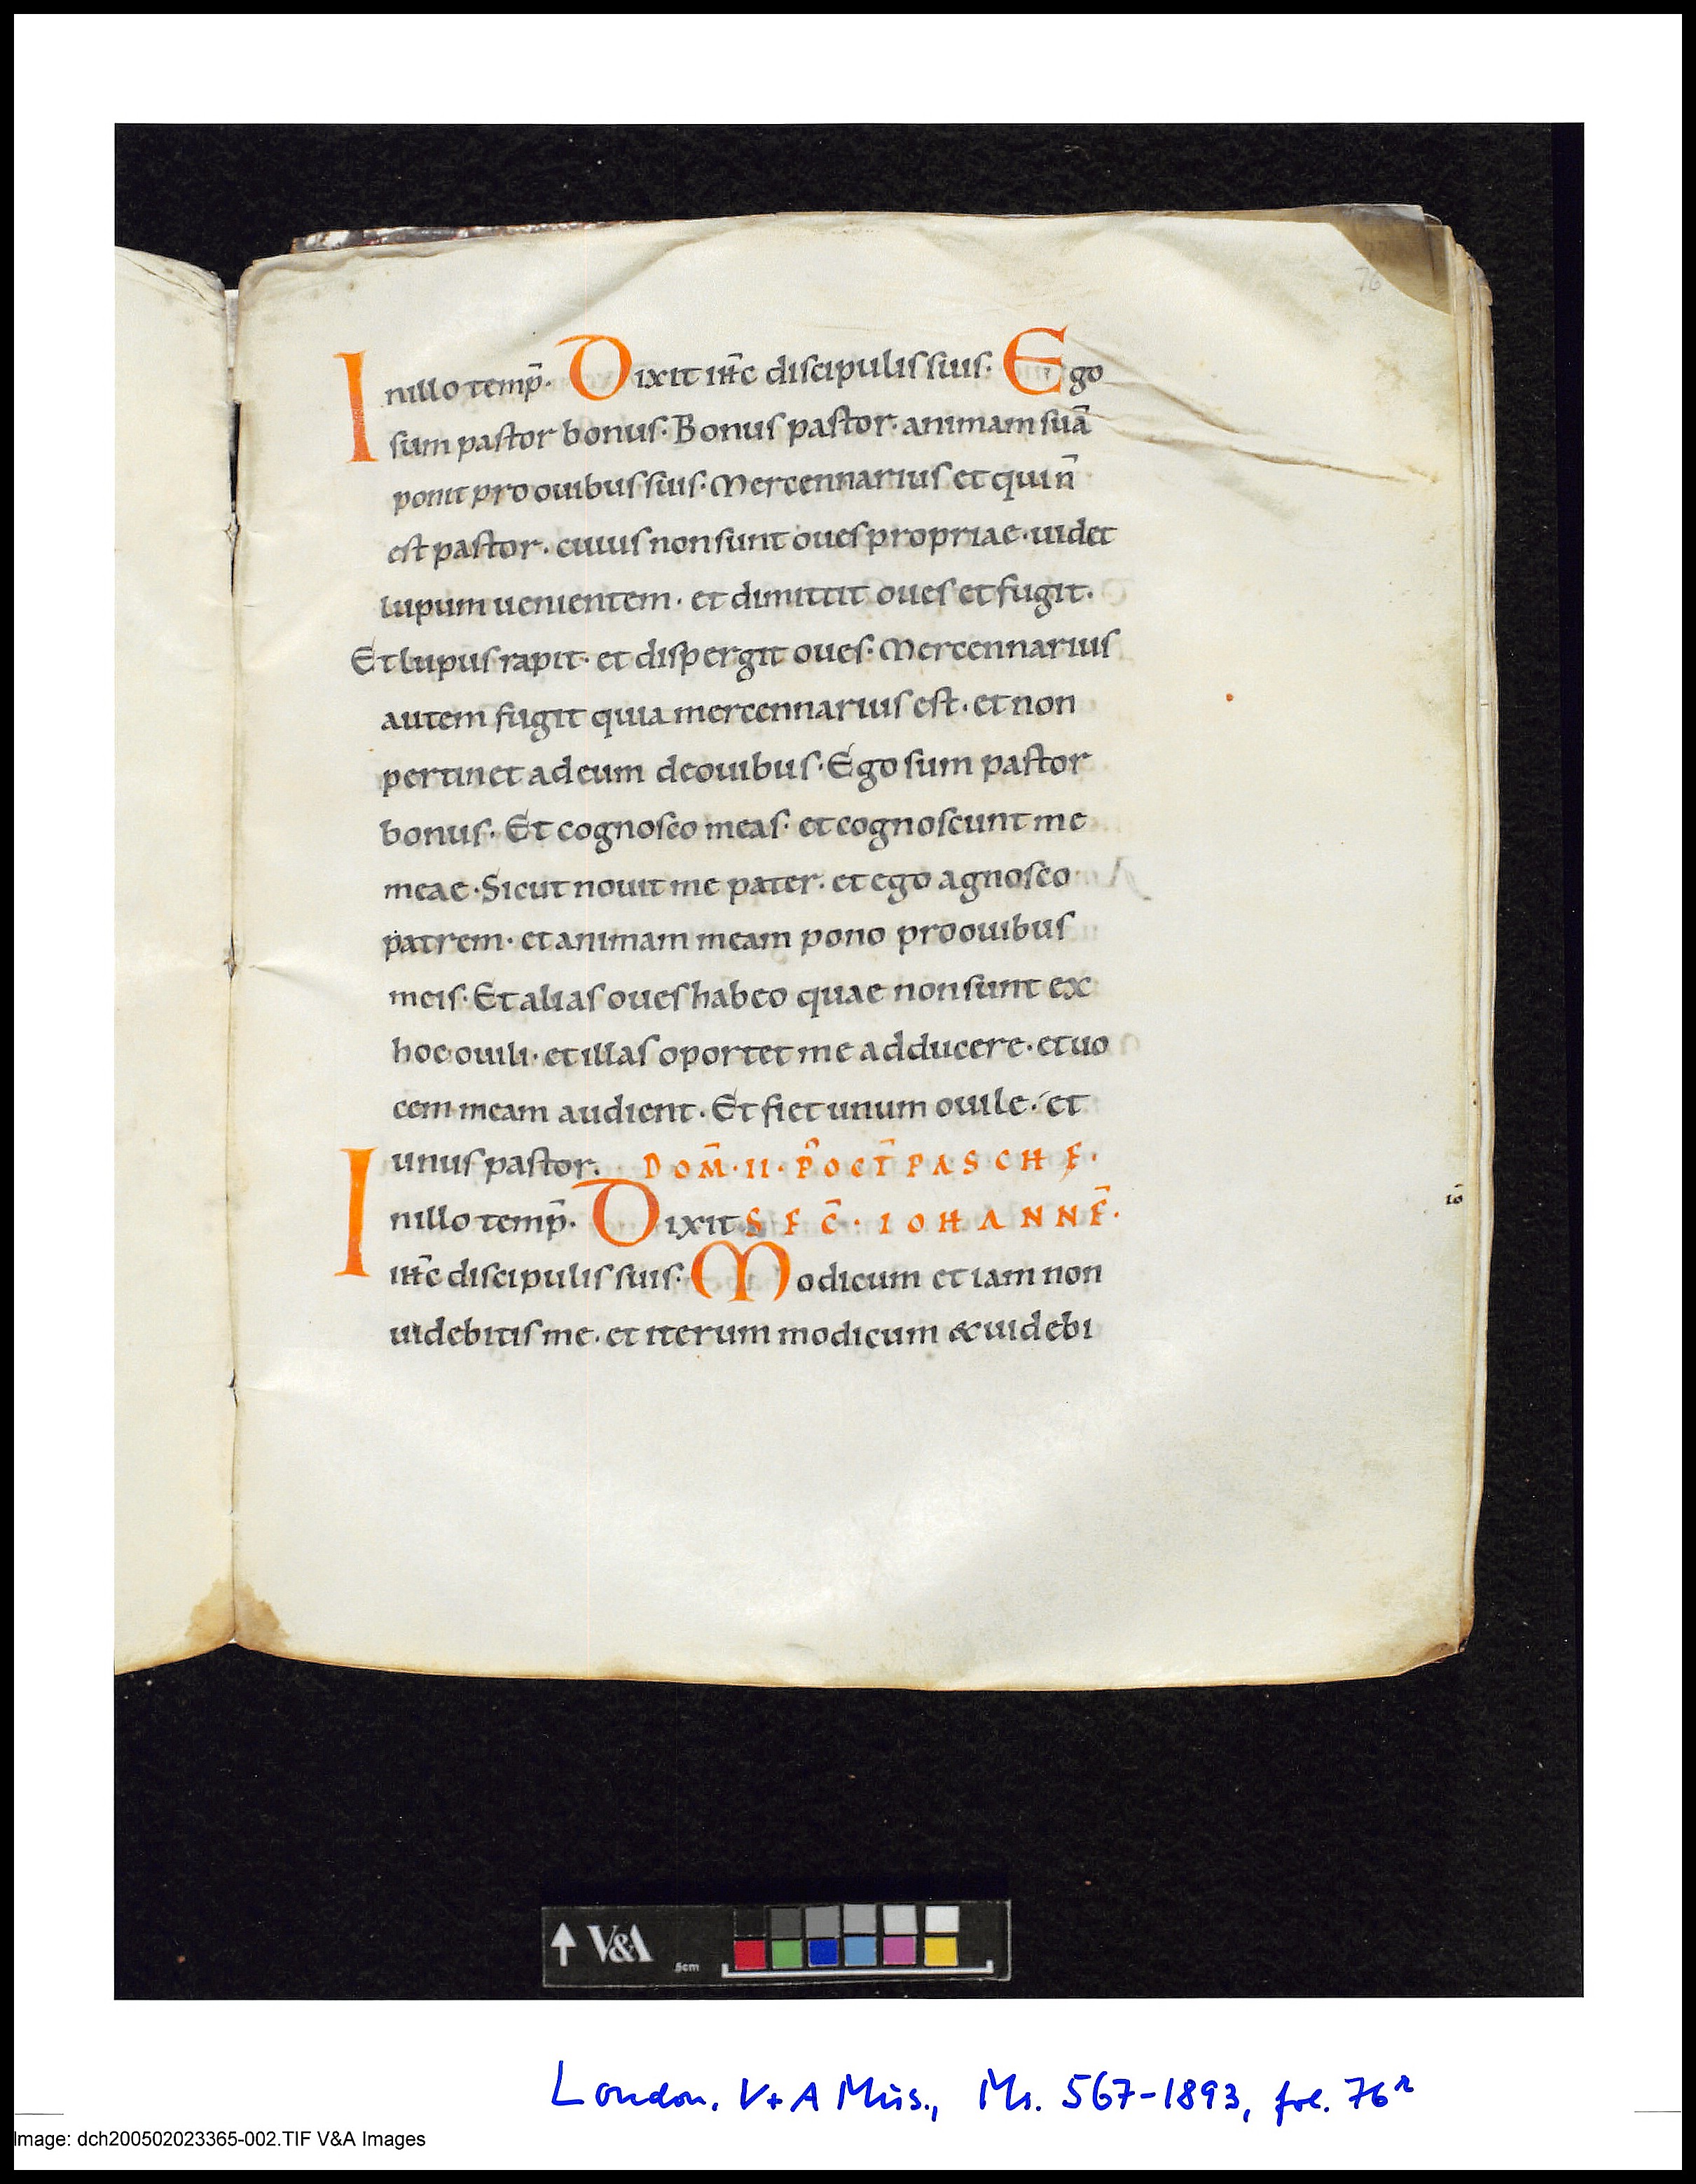 76
In illo temp̄. Dixit ih̄c discipulis suis. Ego
sum pastor bonus. Bonus pastor. animam suā
ponit pro ouibus suis. Mercennarius et qui n̄
est pastor. cuius non sunt oues propriae. uidet
lupum uenientem. et dimittit oues et fugit.
Et lupus rapit. et dispergit oues. Mercennarius
autem fugit quia mercennarius est. et non
pertinet ad eum de ouibus. Ego sum pastor
bonus. Et cognosco meas. et cognoscunt me
meae. Sicut nouit me pater. et ego agnosco
patrem. et animam meam pono pro ouibus
meis. Et alias oues habeo quae non sunt ex
hoc ouili. et illas oportet me adducere. et uo
cem meam audient. Et fiet unum ouile. et
unus pastor. DOM̄. II. POCT̄ PASCHE.
In illo temp̄. Dixit SEC̄. IOHANNĒ.
ih̄c discipulis suis. Modicum et iam non
uidebitis me. et iterum modicum & uidebi
iō
V&A
5cm
London, V+A Mus., Ms. 567-1893, fol. 76r
Image: dch200502023365-002.TIF V&A Images